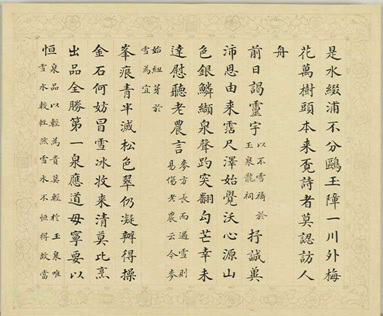 是水綴浦不分鷗王障一川外梅
花萬樹頭本來覔詩者莫認訪人
舟
前日謁靈宇以不雪禱於玉泉龍祠抒誠奠
沛恩由來霑尺澤始覺沃心源山
色銀鱗纈泉聲趵突翻勾芒幸未
達慰聽老農言麥方長而遇雪則易傷老農云今麥
始紐芽於雪為宜
峯痕青半滅松色翠仍凝辨得操
金石何妨冒雪冰收來清莫比烹
出品全勝第一泉應道毋寧要以
恒泉品以輕為貴莫輕於玉泉唯雪水較輕然雪水不恒得故當